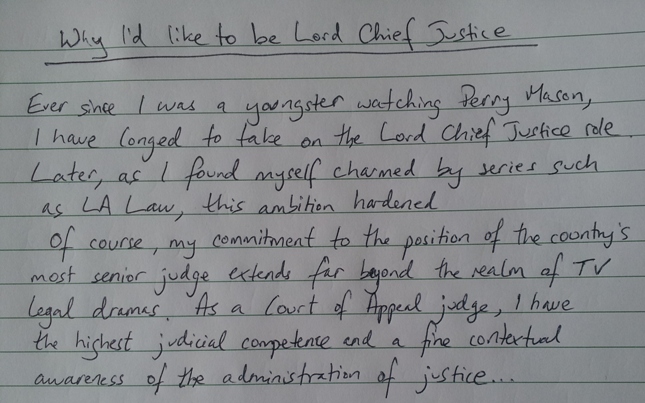 Why I'd like to be Lord Chief Justice
Ever since I was a youngster watching Perry Mason,
I have longed to take on the Lord Chief Justice role.
Later, as I found myself charmed by series such
as LA Law, this ambition hardened
Of course, my commitment to the position of the country's
most senior judge extends far beyond the realm of TV
legal dramas. As a Court of Appeal judge, I have
the highest judicial competence and a fine contextual
awareness of the administration of justice...